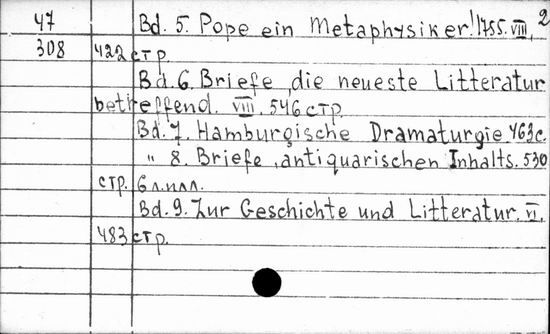 47 Bd. 5. Pope ein Metaphysiker! 1755. VIII, 2
308 422 стр.
Bd. 6. Briefe, die neueste Litteratur
betreffend. VIII. 546 стр.
Bd. 7. Hamburgische Dramaturgie. 463 с.
" 8. Briefe, antiquarischen Inhalts. 530
стр. 6 л. илл.
Bd. 9. Zur Geschichte und Litteratur. VI.
483 стр.